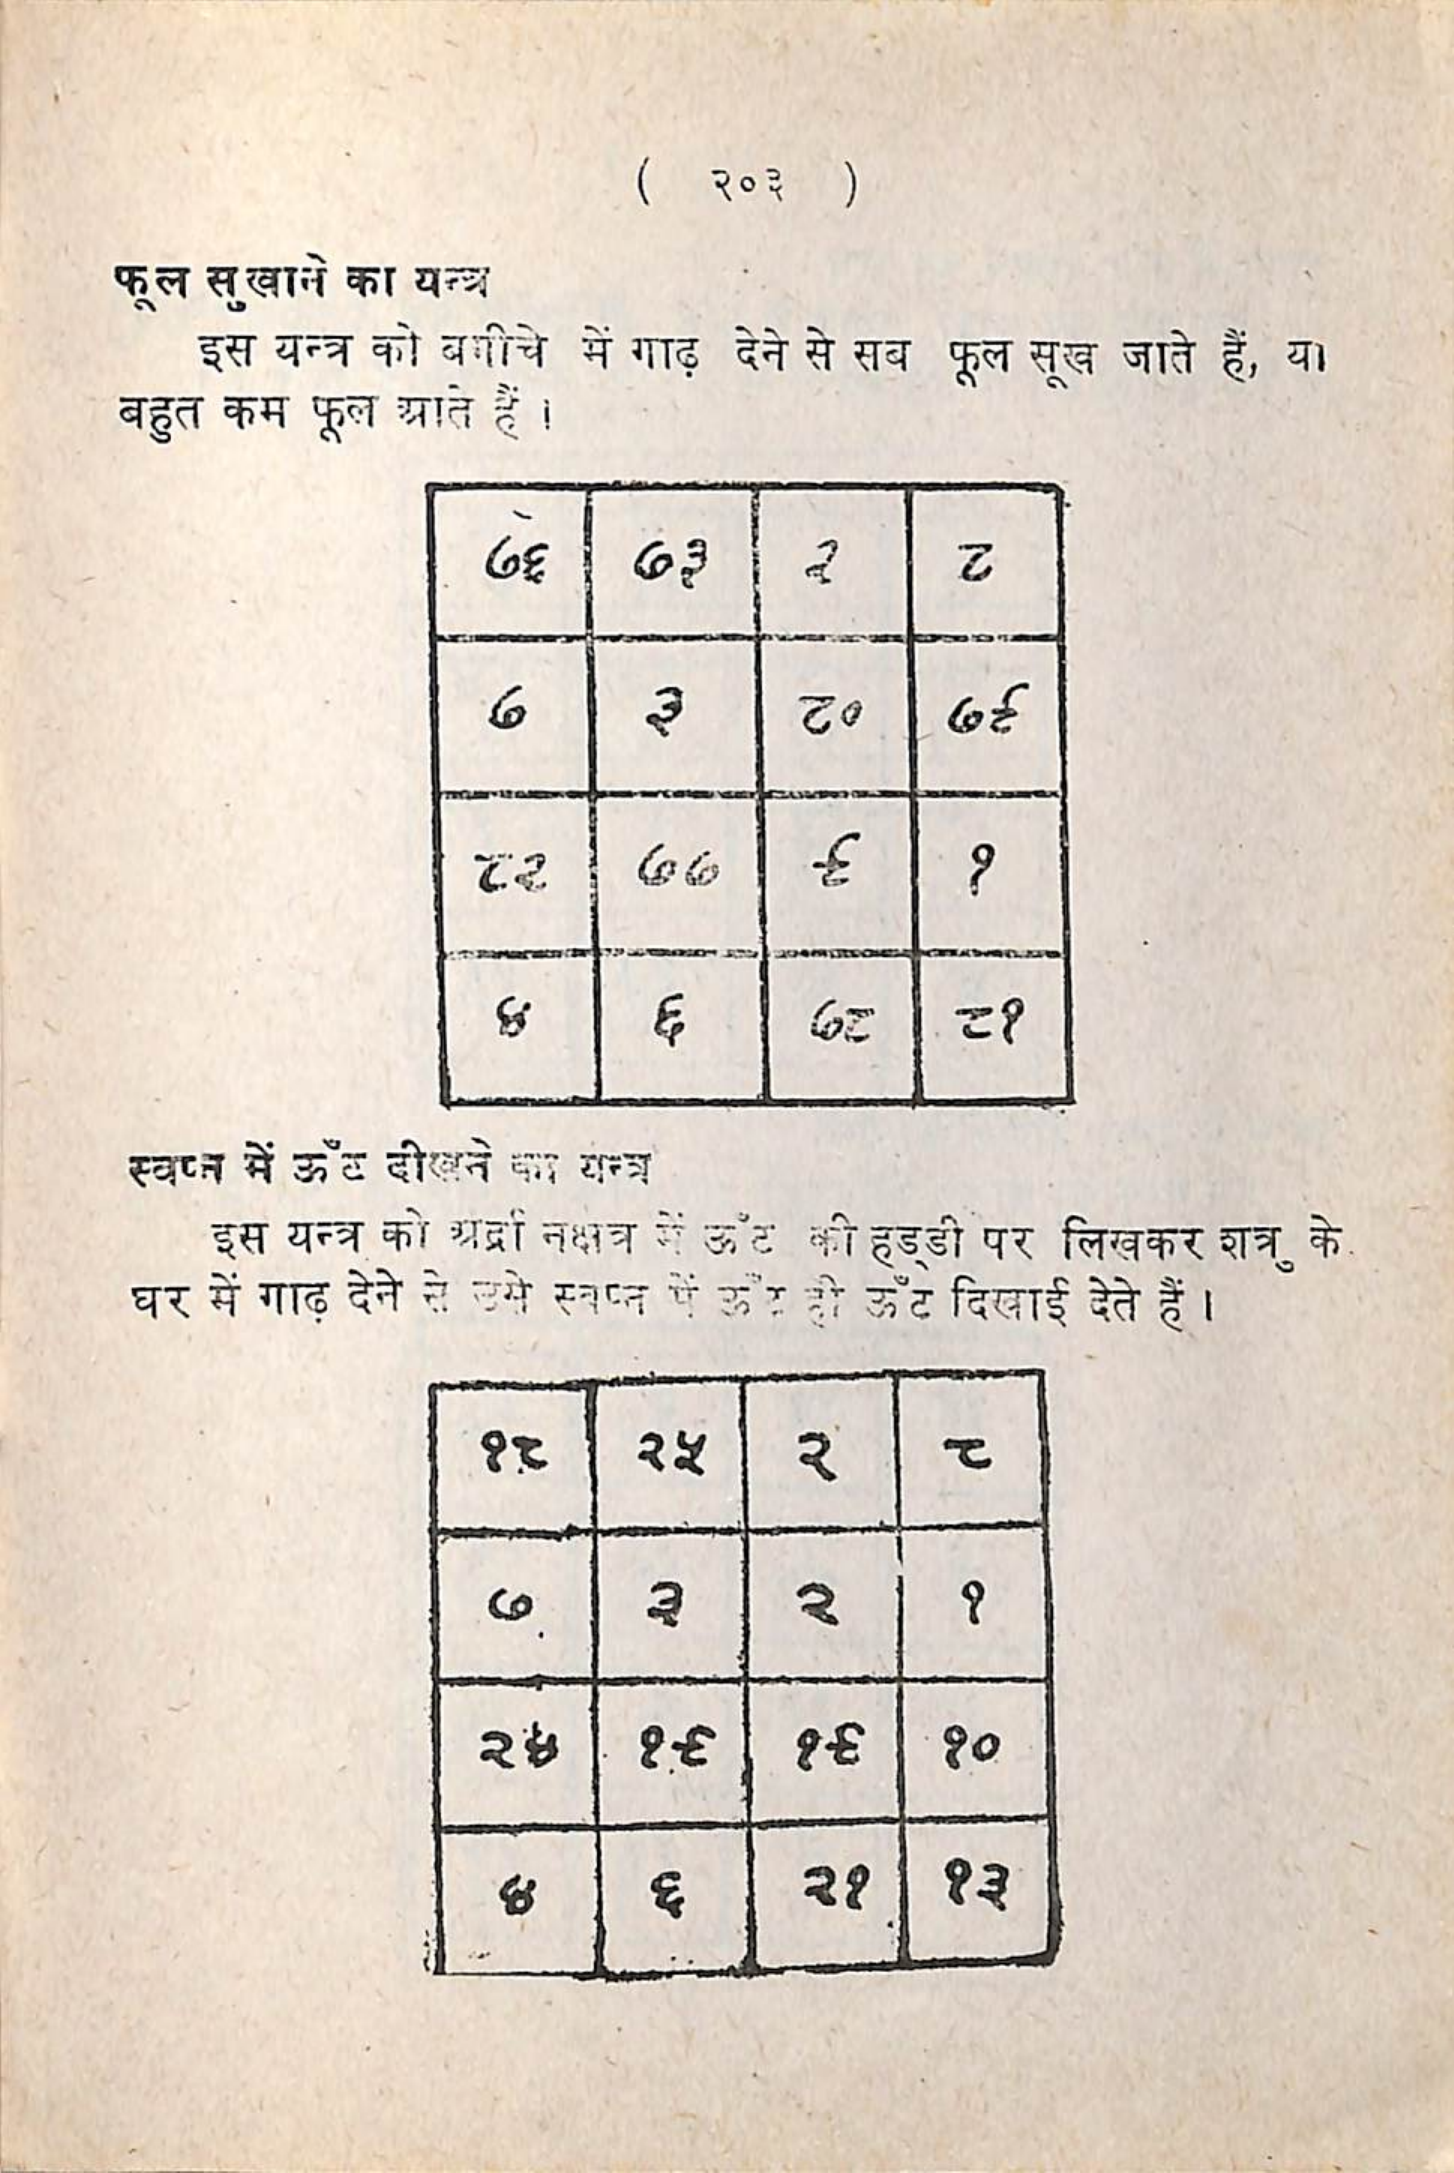 ( २०३ )
फूल सुखाने का यन्त्र
इस यन्त्र को बगीचे में गाढ़ देने से सब फूल सूख जाते हैं, या
बहुत कम फूल आते हैं ।
७६ ७३ २ ८
७ ३ ८० ७९
८२ ७७ ९ १
४ ६ ७८ ८१
स्वप्न में ऊँट दीखने का यन्त्र
इस यन्त्र को अर्द्रा नक्षत्र में ऊँट की हड्डी पर लिखकर शत्रु के
घर में गाढ़ देने से उसे स्वप्न में ऊँट ही ऊँट दिखाई देते हैं ।
१८ २५ २ ८
७ ३ २ १
२४ १९ १९ १०
४ ६ २१ १३